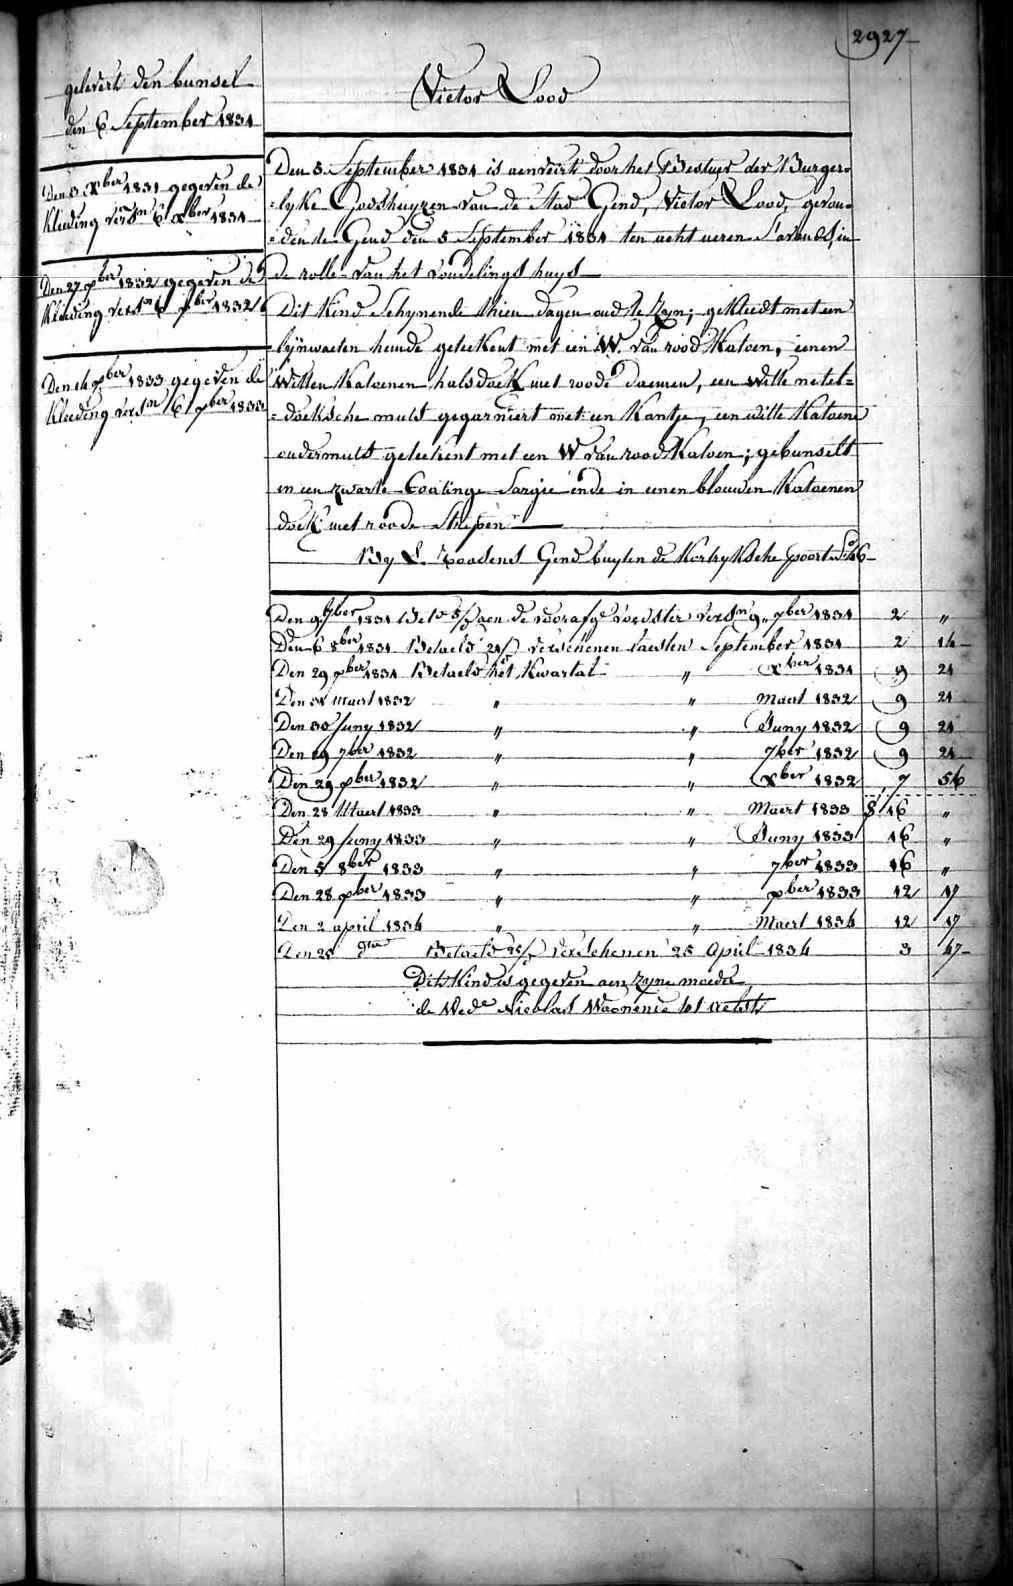 2927
gelevert den bunsel
den 6 September 1831
Den 3 Xber 1831 gegeven de
kleeding versn 6 Xber 1831
Den 27 Xber 1832 gegeven de
kleeding versn 6 Xber 1832
Den 14 Xber 1833 gegeven de
kleeding versn 6 Xber 1833
Victor Lood
Den 5 September 1831 is aenveirt door het Bestuyr der Burger-
-lyke Godshuyzen van de Stad Gend, Victor Lood, gevon-
-den te Gend den 5 September 1831 ten acht ueren S'avonds in
de rolle van het vondelingshuys
Dit Kind Schynende thien dagen oud te Zyn; gekleedt met een
lynwaeten hemde geteekent met een W. van rood Katoen, eenen
Witten Katoenen halsdoek met roode daemen, een witte netel-
-doeksche muts gegarniert met een Kantje, een witte Katoene
ondermuts geteekent met een W van rood Katoen; gebunselt
in een zwarte Coatinge Sargie ende in eenen blouwen Katoenen
doek met roode Strepen
By L. Goosens Gend buyten de Kortryksche poort No 46
Den 9 7ber 1831 Bet de 5/ aen de voorafge voedster versn 9 7ber 1831 2 "
Den 6 8ber 1831 Betaeld 21/ verschenen laesten September 1831 2 14
Den 29 Xber 1831 Betaeld het Kwartal " Xber 1831 9 21
Den 31 Maert 1832 " " Maert 1832 9 21
Den 30 Juny 1832 " " Juny 1832 9 21
Den 29 7ber 1832 " " 7ber 1832 9 21
Den 29 Xber 1832 " " Xber 1832 7 56
Den 28 Maert 1833 " " Maert 1833 16 "
Den 29 Juny 1833 " " Juny 1833 16 "
Den 5 8ber 1833 " " 7ber 1833 16 "
Den 28 Xber 1833 " " Xber 1833 12 17
Den 2 april 1834 " " Maert 1834 12 17
Den 25 dito Betaeld 25/ verschenen 25 April 1834 3 47
Dit Kind is gegeven aen zyne moeder
de Wede Nicolas Waonenie tot Aelst